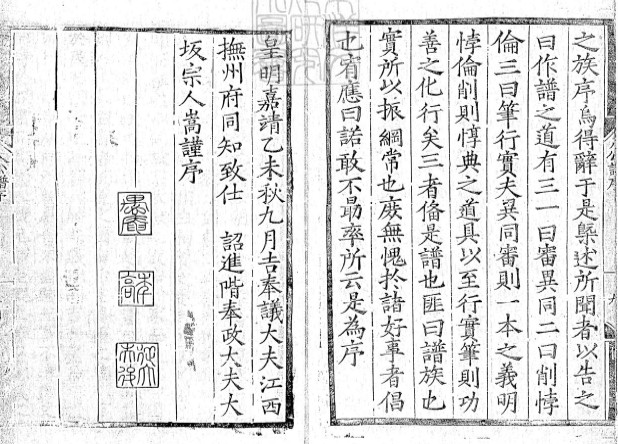 之族序烏得辭于是槩述所聞者以告之
曰作譜之道有三一曰審異同二曰削悖
倫三曰筆行實夫異同審則一本之義明
悖倫削則惇典之道具以至行實筆則功
善之化行矣三者俻是譜也匪曰譜族也
實所以振綱常也庻無愧於諸好事者倡
也宥應曰諾敢不勗率所云是為序
皇明嘉靖乙未秋九月吉奉議大夫江西
撫州府同知致仕 詔進階奉政大夫大
坂宗人嵩謹序